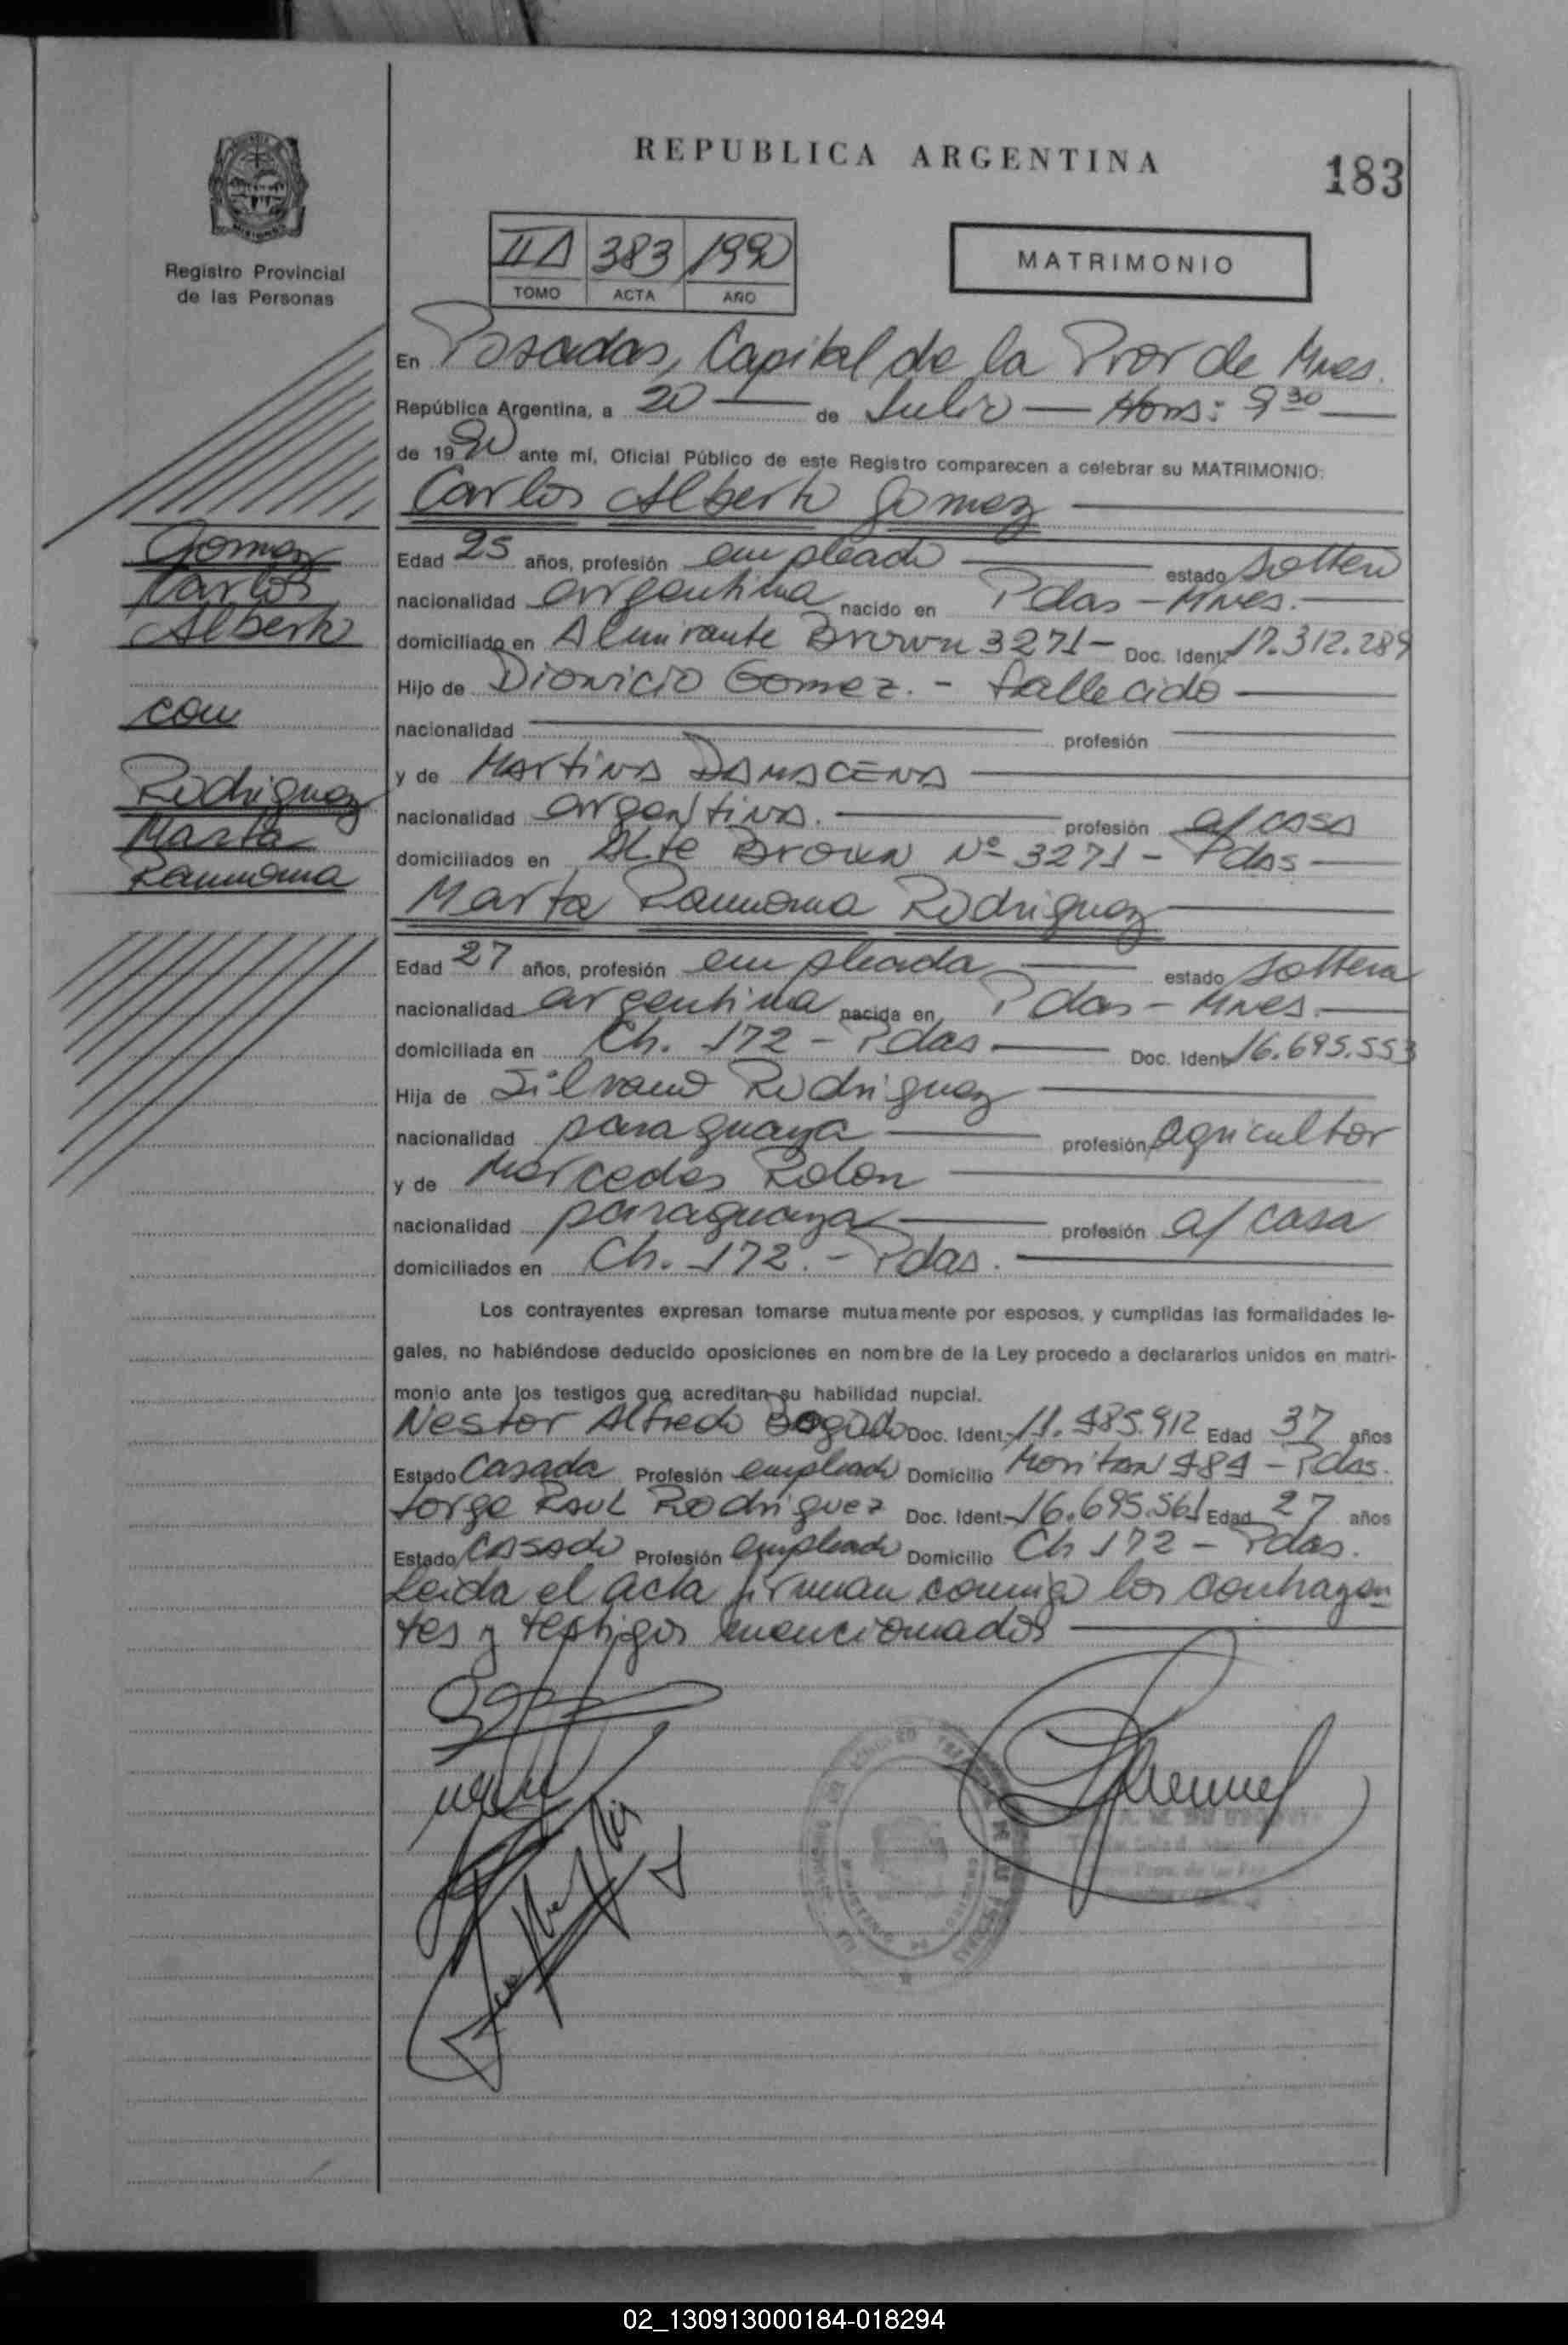 REPUBLICA ARGENTINA
183
Registro Provincial
de las Personas
IIA 383 1990
TOMO ACTA AÑO
MATRIMONIO
En Posadas, Capital de la Prov de Mnes.
República Argentina, a 20 de Julio Horas: 9 30
de 1990 ante mí, Oficial Público de este Registro comparecen a celebrar su MATRIMONIO:
Carlos Alberto Gomez
Gomez
Carlos
Alberto
con
Rodriguez
Marta
Ramona
Edad 25 años, profesión empleado estado soltero
nacionalidad argentina nacido en Pdas - Mnes.
domiciliado en Almirante Brown 3271 - Doc. Ident. 17.312.289
Hijo de Dionicio Gomez. - fallecido
nacionalidad profesión
y de Martina DAMACENA
nacionalidad argentina. profesión a/ casa
domiciliados en Alte Brown Nº 3271 - Pdas
Marta Ramona Rodriguez
Edad 27 años, profesión empleada estado soltera
nacionalidad argentina nacida en Pdas - Mnes.
domiciliada en Ch. 172 - Pdas. Doc. Ident. 16.695.553
Hija de Silvano Rodriguez
nacionalidad paraguaya profesión agricultor
y de Mercedes Rolon
nacionalidad paraguaya profesión a/ casa
domiciliados en Ch. 172. - Pdas.
Los contrayentes expresan tomarse mutuamente por esposos, y cumplidas las formalidades le-
gales, no habiéndose deducido oposiciones en nombre de la Ley procedo a declararlos unidos en matri-
monio ante los testigos que acreditan su habilidad nupcial.
Nestor Alfredo Bogado Doc. Ident. 11.485.912 Edad 37 años
Estado Casado Profesión empleado Domicilio 484 - Pdas.
Jorge Raul Rodriguez Doc. Ident. 16.695.561 Edad 27 años
Estado CASADO Profesión empleado Domicilio Ch 172 - Pdas.
Leida el acta firman conmigo los contrayen
tes y testigos mencionados
02_130913000184-018294